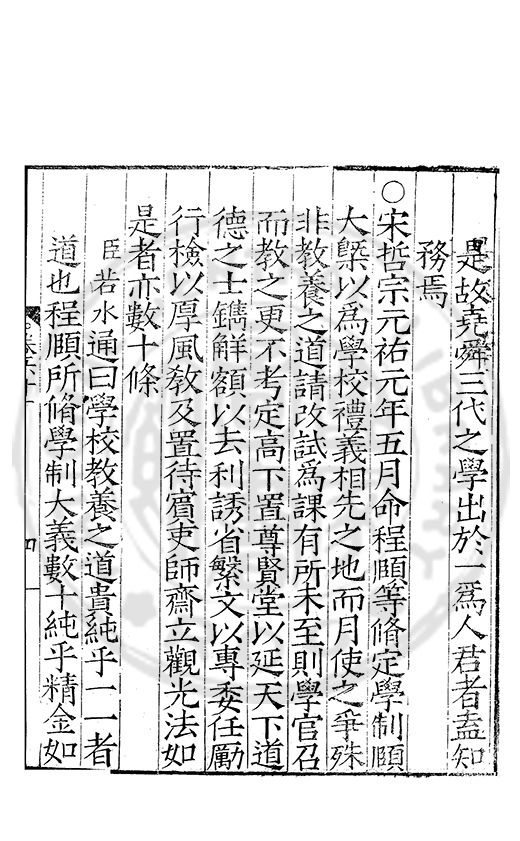 是故堯舜三代之學出於一爲人君者盍知
務焉
○宋哲宗元祐元年五月命程頤等脩定學制頤
大槩以爲學校禮義相先之地而月使之爭殊
非教養之道請改試爲課有所未至則學官召
而教之更不考定高下置尊賢堂以延天下道
德之士鐫解額以去利誘省繁文以專委任勵
行檢以厚風教及置待賓吏師齋立觀光法如
是者亦數十條
臣若水通曰學校教養之道貴純乎一一者
道也程頤所脩學制大義數十純乎精金如
卷六十
四